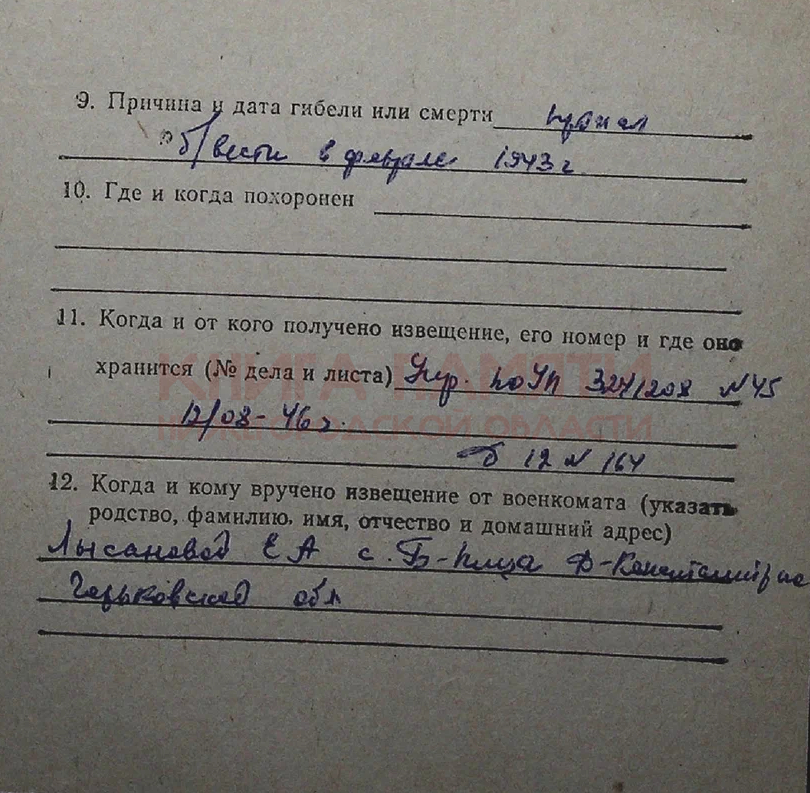 9. Причина и дата гибели или смерти пропал
б/вести в феврале 1943 г
10. Где и когда похоронен
11. Когда и от кого получено извещение, его номер и где оно
хранится (№ дела и листа) Упр. по УП 324/208 N 45
КНИГА ПАМЯТИ
12/08-46 г.
НИЖЕГОРОДСКОЙ ОБЛАСТИ
б 12 N 164
12. Когда и кому вручено извещение от военкомата (указать
родство, фамилию, имя, отчество и домашний адрес)
Лысановой Е А с. Б-Пица Д-Константин р на
Горьковской обл